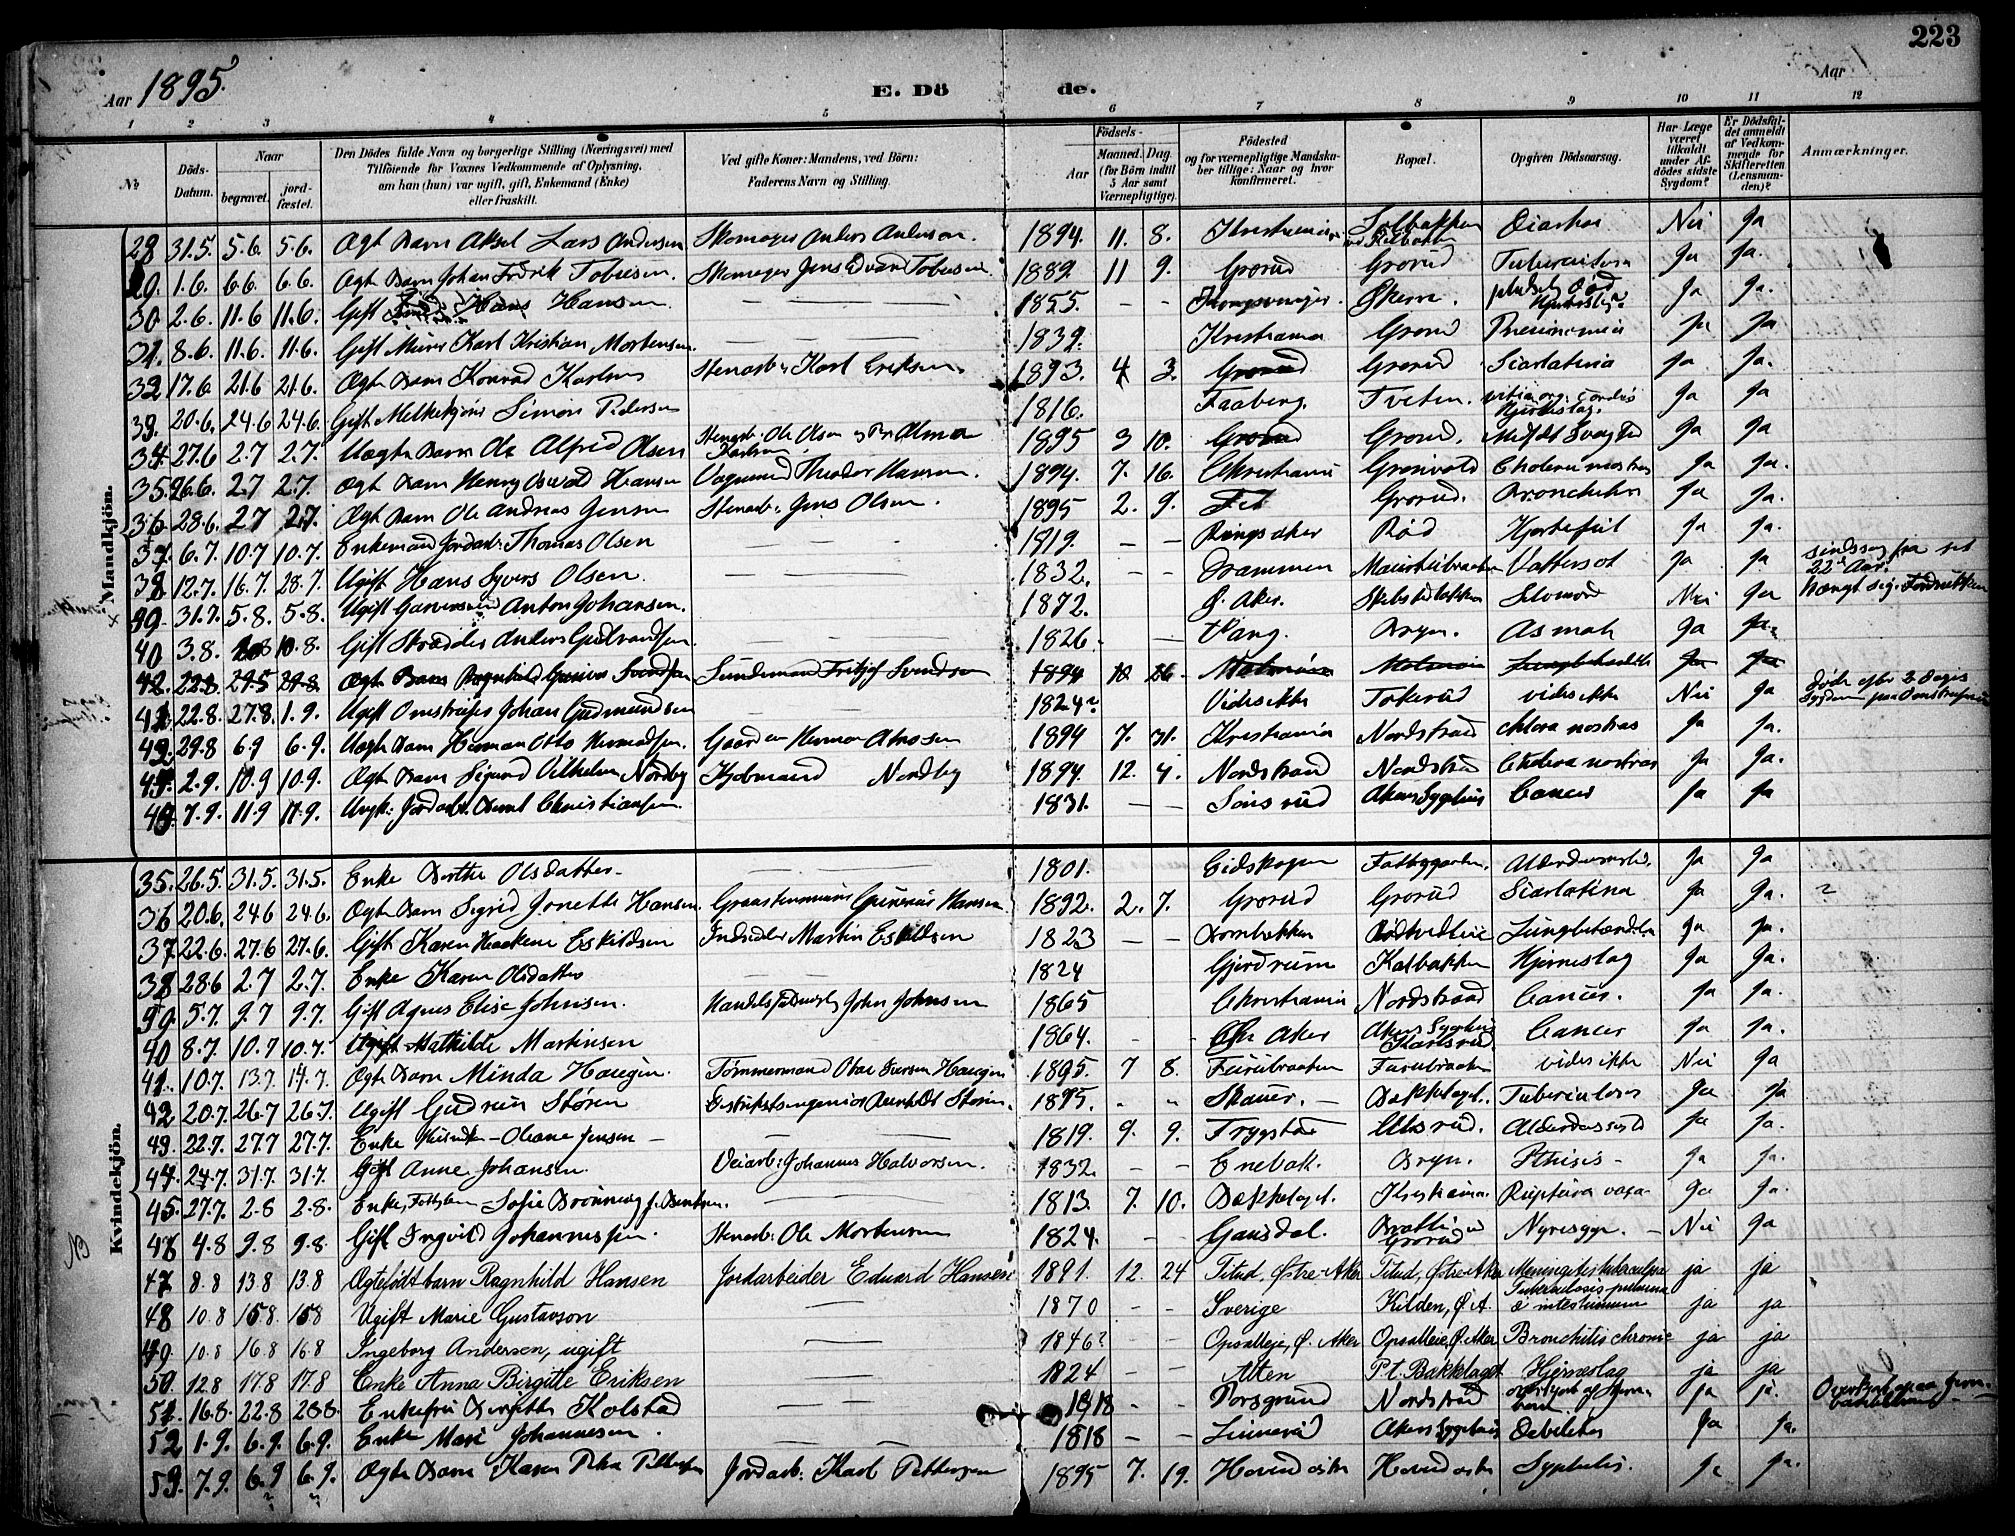 223
Aar 1895.
E. Dö de.
Aar
1 2 3 4 5 6 7 8 9 10 11 12
No
Döds-Datum.
Naar begravet. jord-fæstet.
Den Dödes fulde Navn og borgerlige Stilling (Næringsvei) med Tilföiende for Voxnes Vedkommende af Oplysning, om han (hun) var ugift, gift, Enkemand (Enke) eller fraskilt.
Ved gifte Koner: Mandens, ved Börn: Faderens Navn og Stilling.
Födsels-
Aar
Maaned. Dag. (for Börn indtil 5 Aar samt Værnepligtige).
Födested og for værnepligtige Mandskaber tillige: Naar og hvor konfirmeret.
Bopæl.
Opgiven Dödsaarsag.
Har Læge været tilkaldt under Afdödes sidste Sygdom?
Er Dödsfaldet anmeldt af Vedkommende for Skifteretten (Lensmanden)?
Anmærkninger.
Mandkjön.
31.5. 5.6. 5.6. Ægte Barn Aksel Lars Andersen Skomager Anders Anderson. 1894. 11. 8. Kristiania Solbakken Nei Ja
29. 1.6. 6.6. 6.6. Ægte Barn Johan Fredrik Tobiesen. Skomager Jens Edvard Tobiesen 1889. 11 9. Grorud Grorud Ja Ja.
30 2.6. 11.6 11.6. Gift Hans Hansen — — 1855. - - Kongsvinger. pludselig Död Ja Ja.
31. 8.6. 11.6. 11.6. Gift Murer Karl Kristian Mortensen. — 1839. Kristiania Grorud Pneumonia Ja Ja
32 17.6 21.6 21.6. Ægte Barn Konrad Karlsen Stenarb. Karl Eriksen. 1893. 4 3. Grorud Grorud Scarlatina Ja Ja.
33. 20.6. 24.6 24.6. Gift Simon Pedersen 1816. Faaberg. Tveten. vitia org. cordis Hjerteslag. Ja Ja
34. 27.6 2.7 2.7. Uægte Barn Ole Alfred Olsen Stenarb. Ole Olsen 1895 3 10. Grorud Grorud. Medfødt Svaghed Ja Ja
35. 26.6. 2.7 2.7. Ægte Barn Henry Osvald Hansen Vognmand Theodor Hansen. 1894. 7. 16. Christiania Grønvold Cholera nostras Ja Ja.
36 28.6. 2.7 2.7. Ægte Barn Ole Andreas Jensen Stenarb. Jens Olsen. 1895 2. 9. Fet Grorud. Bronchitis Ja Ja.
37. 6.7. 10.7 10.7. Enkemand Jordarb. Thomas Olsen — — 1819. - - Ringsaker Rød Hjertefeil Ja Ja.
38 12.7. 16.7. 28.7. Ugift Hans Syvers Olsen. 1832. Drammen Vattersot Ja Ja sindssyg fra sit 22de Aar.
39 31.7. 5.8. 5.8. Ugift Anton Johansen. 1872. Ø. Aker. Selvmord Nei Ja hængt sig.
40 3.8. 10.8. Gift Skrædder Anders Gulbrandsen — — 1826. - Vang. Bryn. Asmah Ja Ja.
42. 22.8 27.5 27.8. Ægte Barn Ragnhild Svendsen Fritjof Svendsen 1894 10 26. Malmøen Malmøen Lungebetændelse Ja Ja
41 22.8. 27.8. 1.9. Ugift Omstreifer Johan Gudmundsen 1824? Vides ikke Tokerud vides ikke Nei Ja døde efter 3 Dages Sygdom paa
43. 29.8 6.9 6.9. Uægte Barn Herman Otto Hermansen. 1894 7. 31. Kristiania Nordstrand cholera nostras Ja Ja.
44. 2.9. 10.9 10.9. Ægte Barn Sigurd Vilhelm Nordby Kjøbmand Nordby 1894. 12. 4. Nordstrand Nordstrand Cholera nostras Ja Ja.
45. 7.9. 11.9 11.9. Ugift Jordarb. Bernt Christiansen — 1831. - - Sönsrud Akers Sygehus Cancer Ja Ja
Kvindekjön.
35. 26.5. 31.5. 31.5. Enke Berthe Olsdatter. — — 1801. Eidskogen Ja Ja
36 20.6. 24.6 24.6. Ægte Barn Sigrid Jonette Hansen Gunerius Hansen 1892. 2. 7. Grorud Grorud Scarlatina Ja Ja.
37 22.6. 27.6 27.6. Gift Karen Haakene Eskildsen Inderster Martin Eskildsen 1823 - - Lungebetændelse Ja Ja.
38 28.6 2.7 2.7. Enke Karen Olsdatter — 1824 Gjerdrum Kalbakken Hjerneslag Ja Ja.
39. 5.7. 9.7 9.7. Gift Agnes Elise Johnsen. John Johnsen 1865 Christiania Nordstrand Cancer. Ja Ja.
40 8.7. 10.7 10.7. Ugift Mathilde Martinsen 1864. Ø. Aker Akers Sygehus Karlsrud Cancer Ja Ja.
41. 10.7. 13.7 14.7. Ægte Barn Minda Haugen. Tømmermand Olaf Iversen Haugen 1895. 7 8. Furubraaten Furubraaten vides ikke Nei Ja
42 20.7. 26.7 26.7. Ugift Gudrun Støren Distriktsingeniør Støren. 1895. Skauer. Bækkelaget. Tuberculosis Ja Ja
43. 22.7. 27.7 27.7. Enke Oleane Jensen — — 1819. 9. 9. Trygstad Ulsrud. Alderdomssvaghed Ja Ja.
44. 24.7. 31.7 31.7. Gift Anne Johansen. Veiarb. Johannes Halvorsen. 1832. - - Enebak. Bryn. Pthisis - Ja Ja.
45. 27.7. 2.8 2.8. Enke, Sofie 1813. 7. 10. Bækkelaget. Kristiania. Ja Ja.
46 4.8 9.8 9.8. Gift Ingvild Johannessen. Stenarb. Ole Mortensen 1824. - - Gausdal. Bratli v. Grorud Nyresyge. - Nei Ja
47 8.8 13.8 13.8 Ægtefødt barn Ragnhild Hansen Jordarbeider Eduard Hansen 1891. 12. 24 Titud, Østre-Aker Titud, Østre-Aker Meningitis tubercul. ja ja
48 10.8 15.8 15.8 Ugift Marie Gustavson — 1870 - - Sverige Kilden, Ø. A. Tuberkulosis pulmon. & intestinum ja ja
49 10.8 16.8 16.8 Ingeborg Andersen, ugift — 1846? Opsalleje, Ø. Aker Opsalleie, Ø. Aker Bronchitis chronic ja ja
50. 12.8 17.8 17.8 Enke Anna Birgitte Eriksen — 1824 - Alten P.t. Bækkelaget Hjerneslag ja ja
51. 16.8. 22.8 Enkefru Birgitte Kolstad 1818 Porsgrund Nordstrand overkjørt af Jernbane ja ja. Overkjørt paa Jernbanelinien
52 1.9. 6.9. 6.9. Enke Mari Johannesen. — — 1818 - - Linnerud Akers Sygehus Debilitas Ja Ja.
53. 7.9. 6.9 6.9. Ægte Barn Karen Petra Pettersen Jordarb. Karl Pettersen 1895 7. 19. Hovind østre Hovind østre Syphilis. Ja Ja.